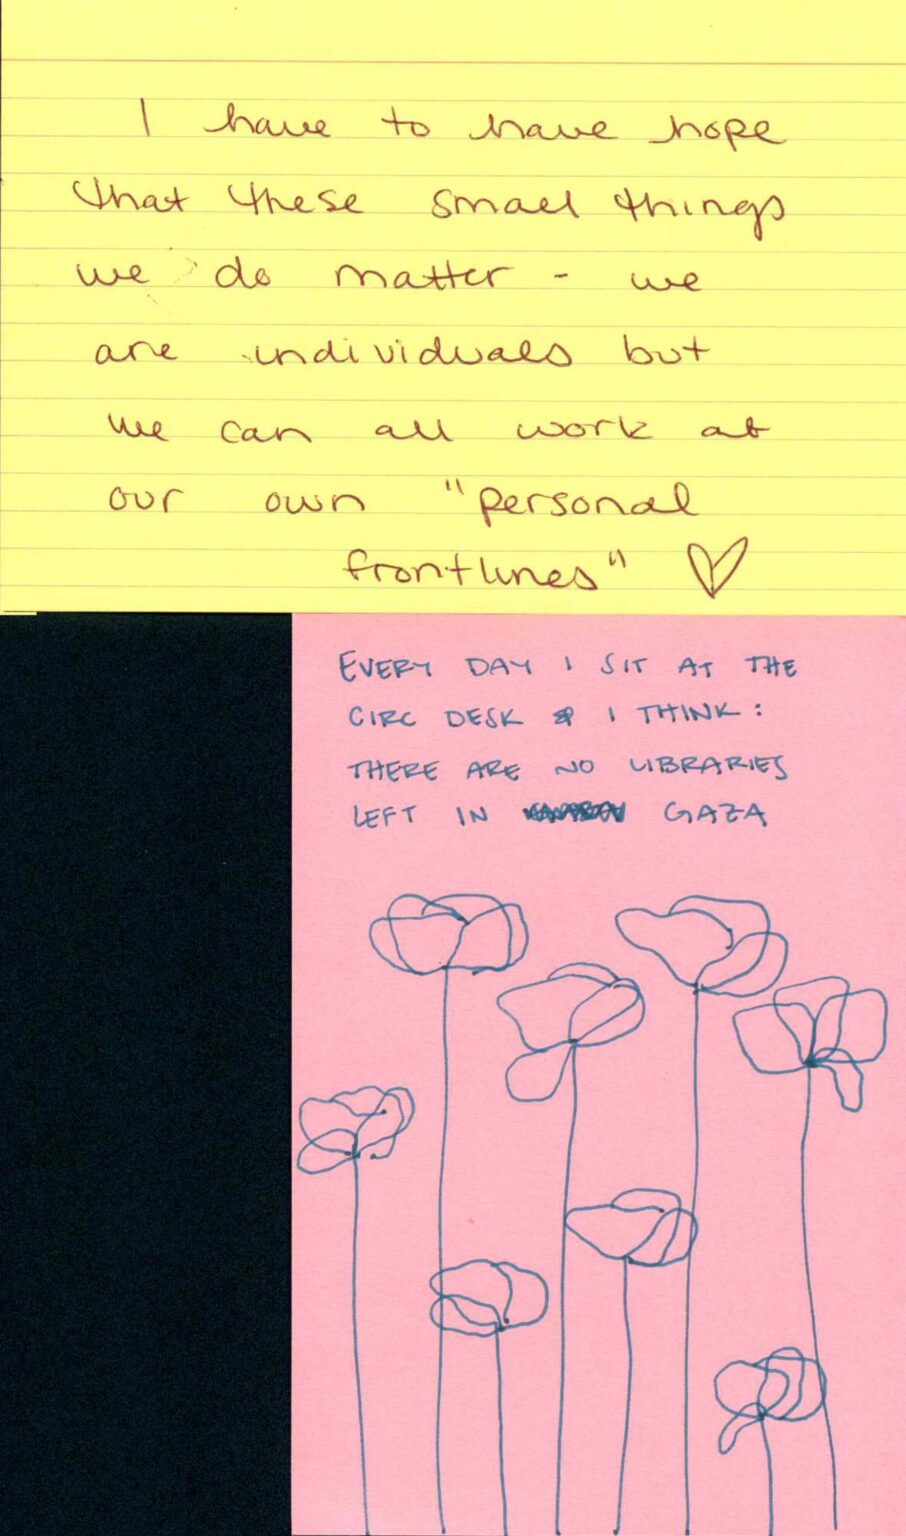 I have to have hope
that these small things
we do matter - we
are individuals but
we can all work at
our own "personal
frontlines" ♡
EVERY DAY I SIT AT THE
CIRC DESK & I THINK:
THERE ARE NO LIBRARIES
LEFT IN GAZA